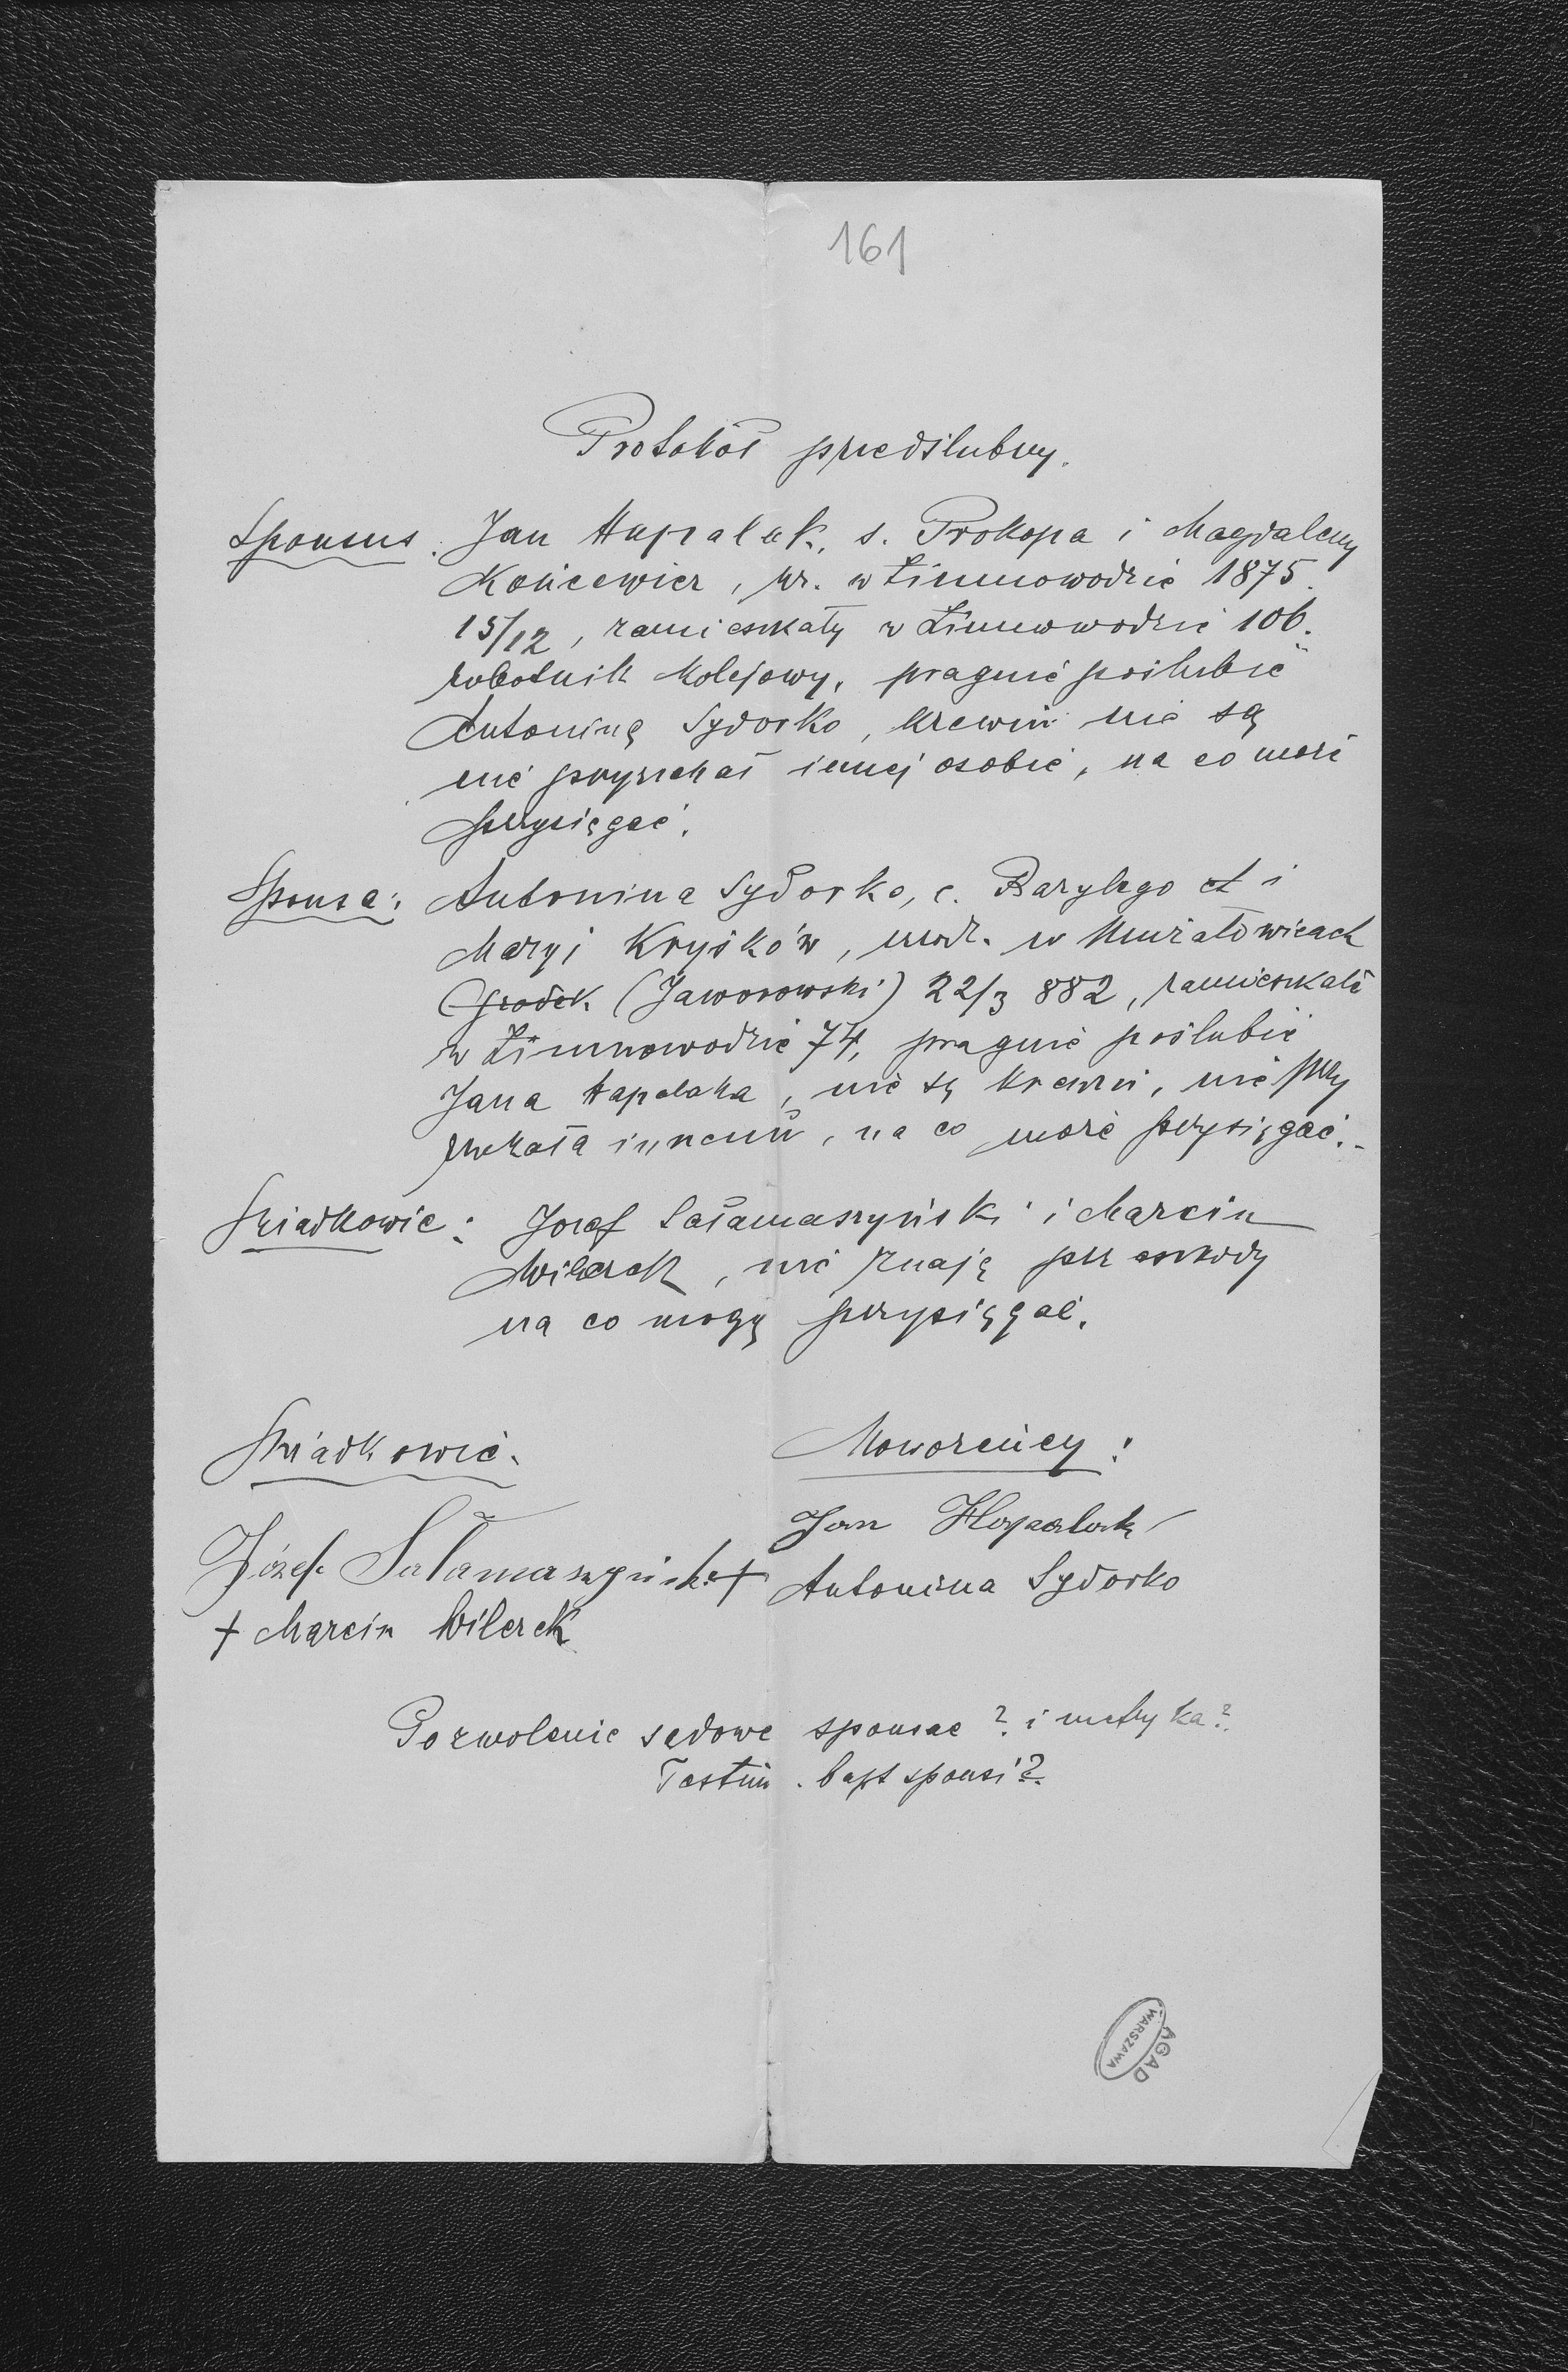 161
Protokół przedślubny.
Sponsus: Jan Hapalak, s. Prokopa i Magdaleny
Końcewicz, ur. w Zimnowodzie 1875.
15/12, zamieszkały w Zimnowodzie 106.
robotnik kolejowy, pragnie poślubić
Antoninę Sydorko, krewni nie są
nie przyrzekał innej osobie, na co może
przysięgać.
Sponsa: Antonina Sydorko, c. Bazylego et i
Maryi Kryśków, urodz. w Mużałowicach
Gródek (Jaworowski) 22/3 882, zamieszkała
w Zimnowodzie 74, pragnie poślubić
Jana Hapalaka, nie są krewni, nie przy
rzekała innemu, na co może przysięgać.-
Świadkowie: Józef Sałamaszyński i Marcin
Wilczek, nie znają przeszkody
na co mogą przysięgać.
Świadkowie. Nowożeńcy:
Józef Sałamaszyński + Jan Hapalak
+ Marcin Wilczek Antonina Sydorko
Pozwolenie sądowe sponsae? i metryka?
Testim. bapt sponsi?
AGAD
WARSZAWA